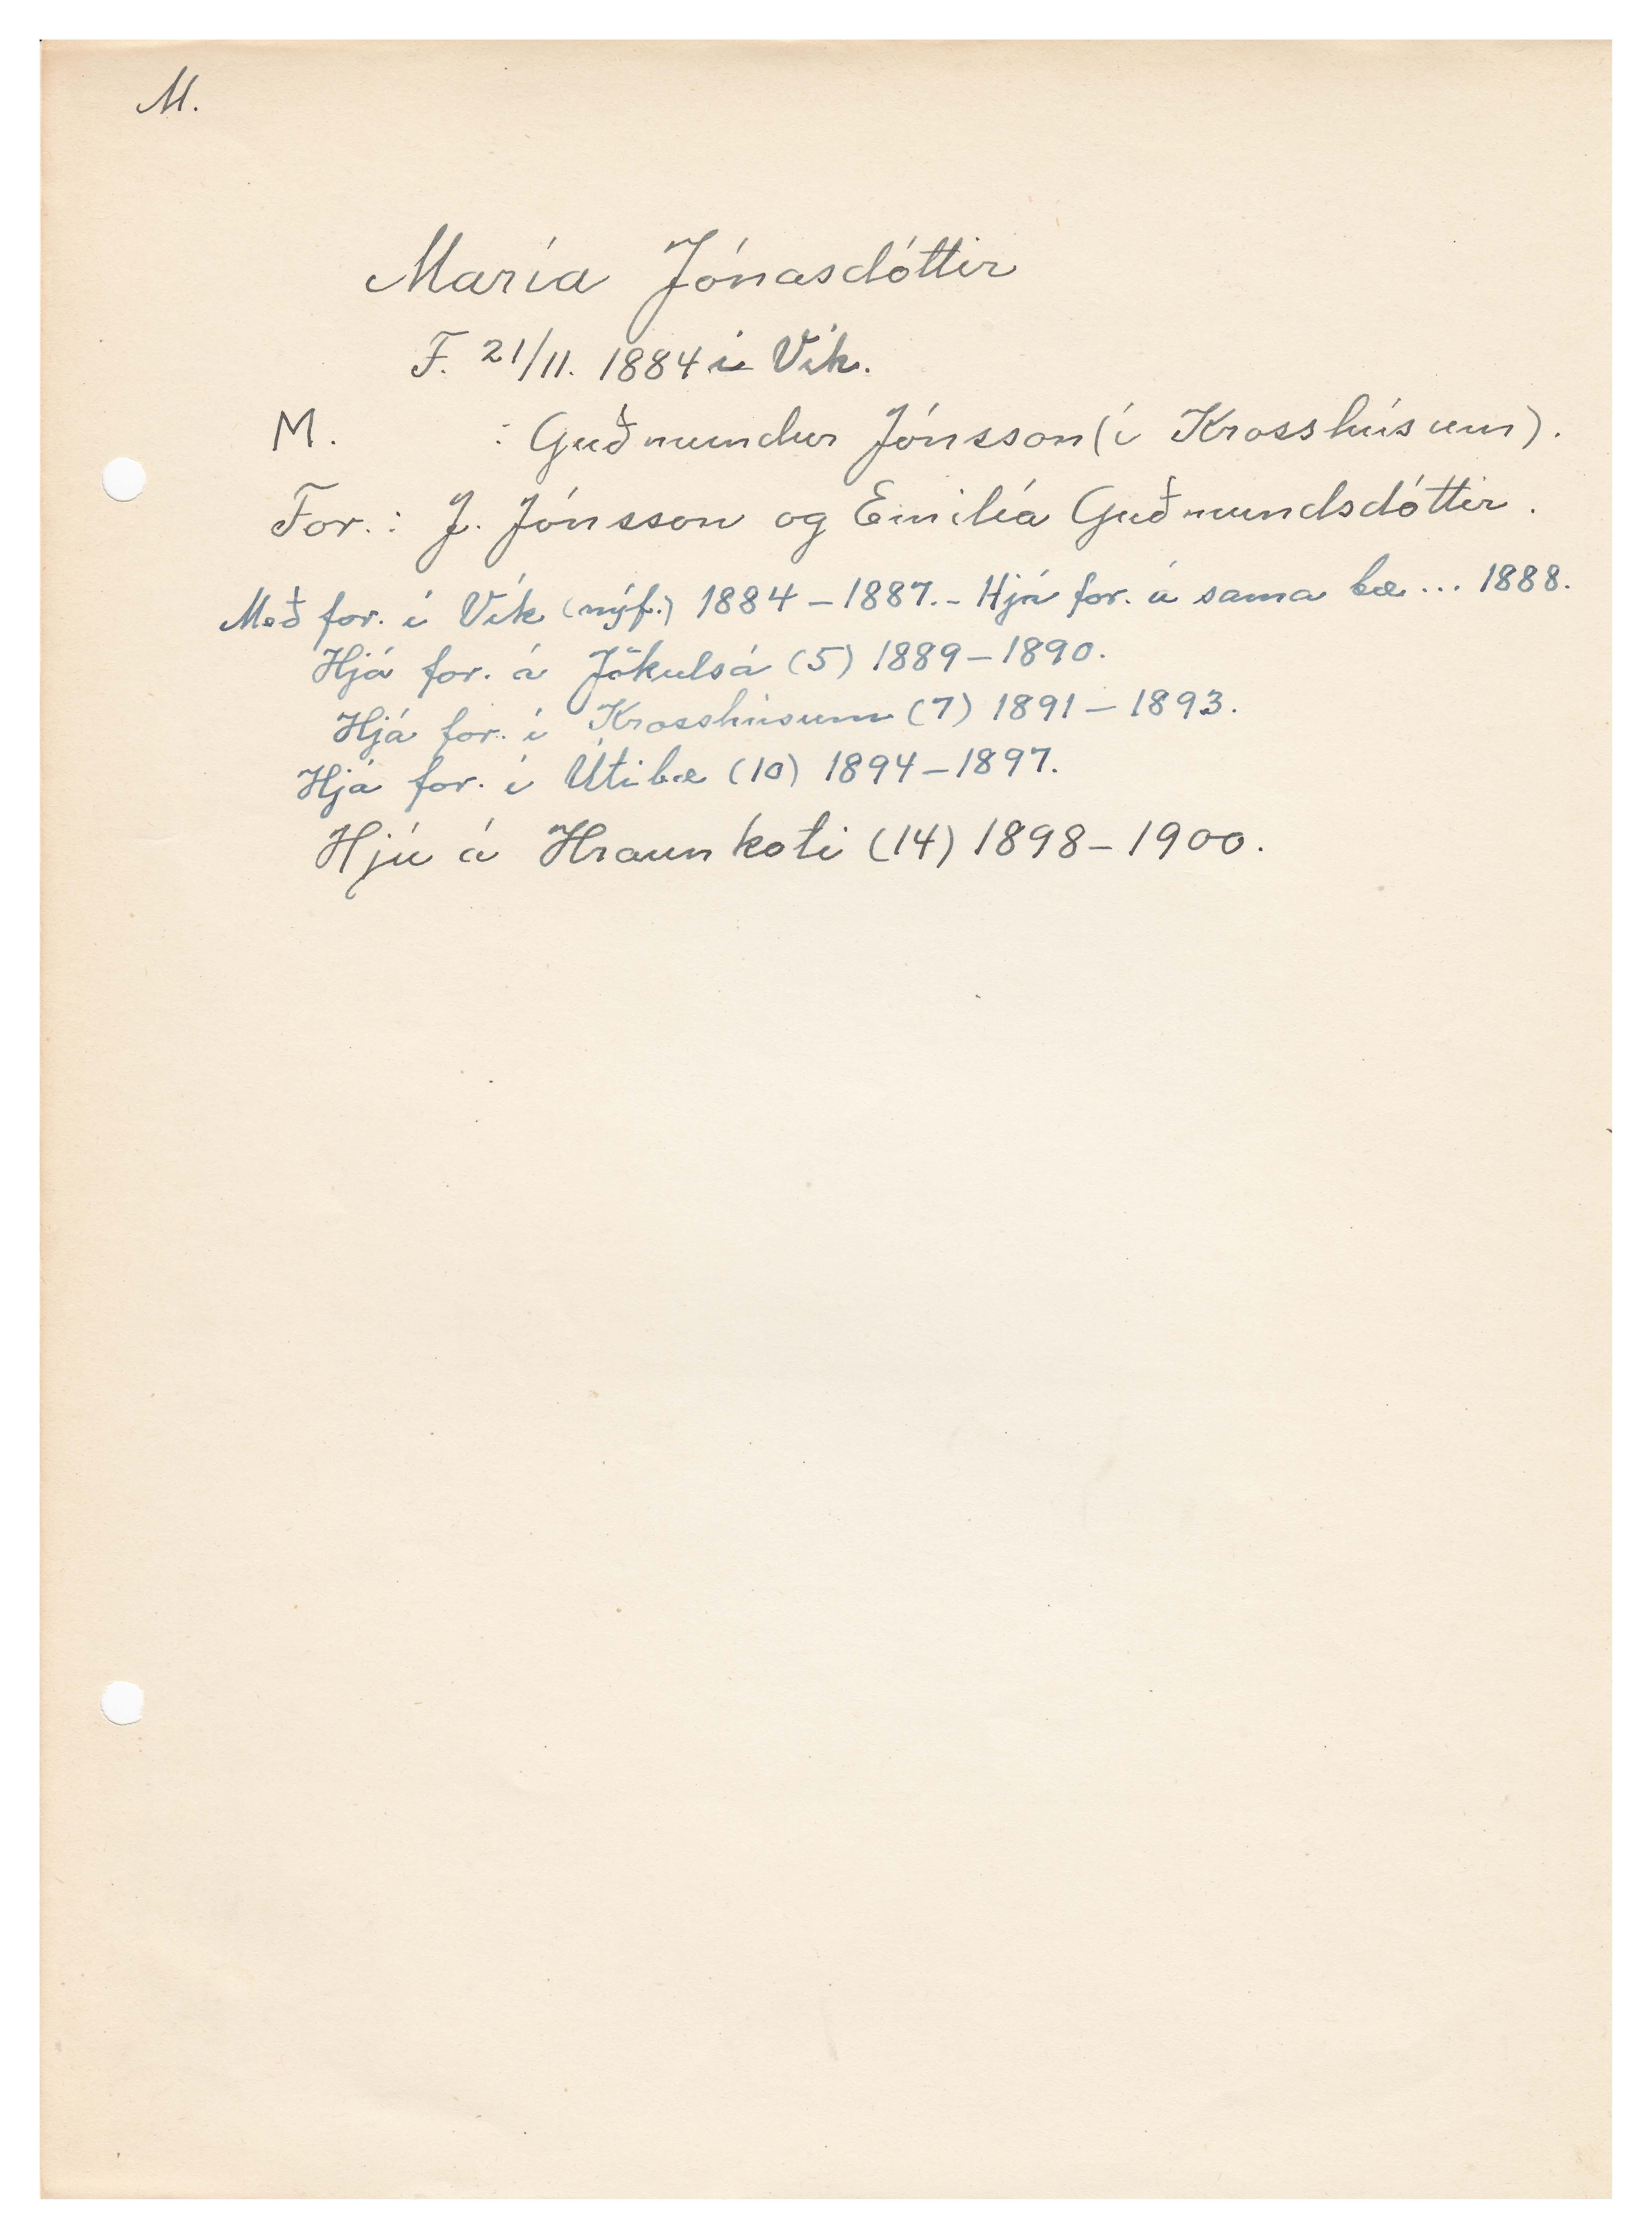 M.
María Jónasdóttir
F. 21/11. 1884 í Vík.
M. : Guðmundur Jónsson (í Krosshúsum).
For.: J. Jónsson og Emilía Guðmundsdóttir.
Með for. í Vík (nýf.) 1884-1887. - Hjá for. á sama bæ ... 1888.
Hjá for. á Jökulsá (5) 1889-1890.
Hjá for. í Krosshúsum (7) 1891-1893.
Hjá for. í Útibæ (10) 1894-1897.
Hjú á Hraunkoti (14) 1898-1900.